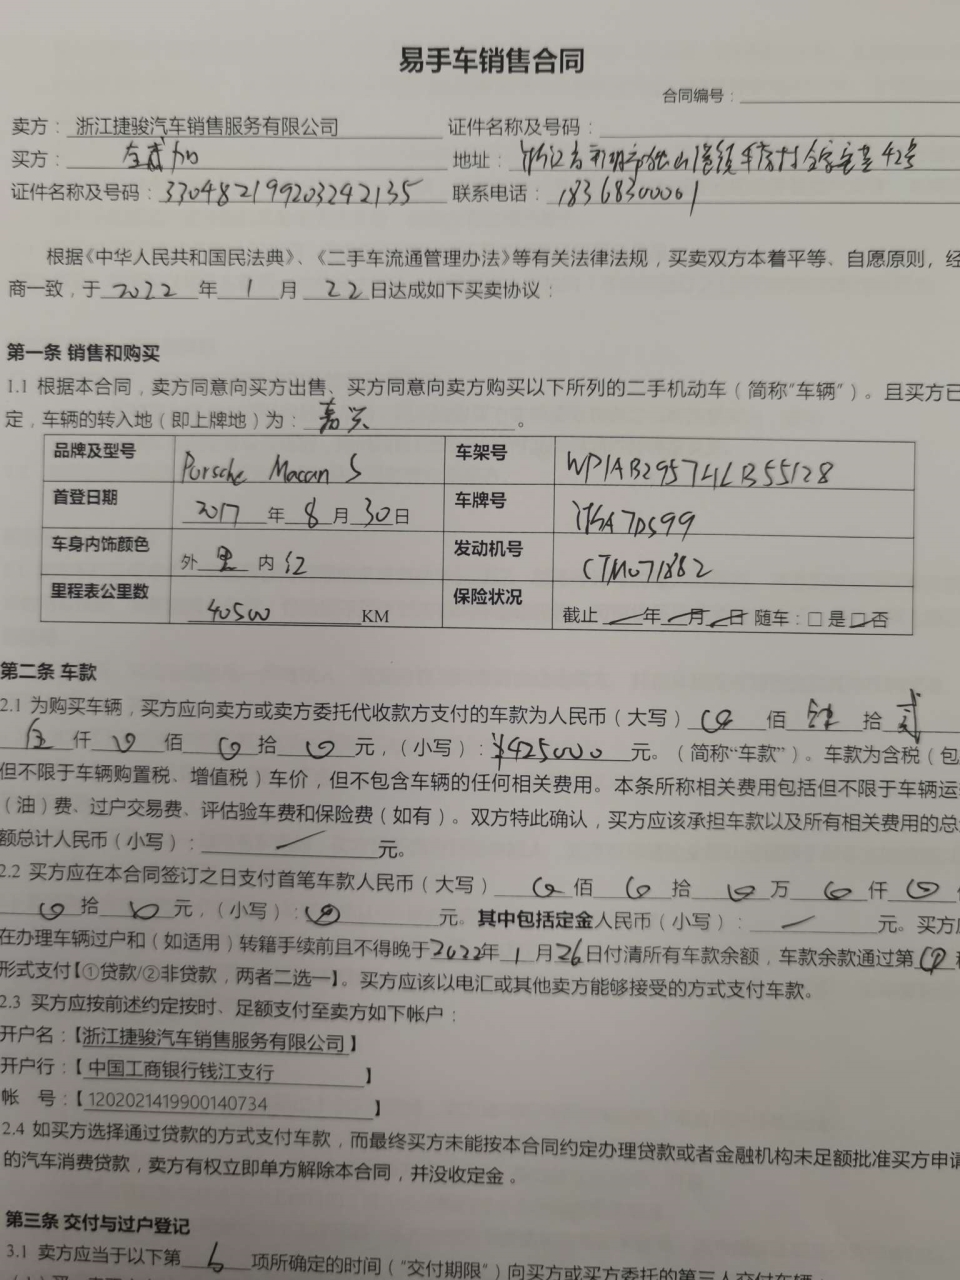 易手车销售合同
合同编号：
卖方： 浙江捷骏汽车销售服务有限公司 证件名称及号码：
买方： 地址： 浙江省 独山港镇 村 42号
证件名称及号码：330482199203242135 联系电话：18368300001
根据《中华人民共和国民法典》、《二手车流通管理办法》等有关法律法规，买卖双方本着平等、自愿原则，经
商一致，于 2022 年 1 月 22 日达成如下买卖协议：
第一条 销售和购买
1.1 根据本合同，卖方同意向买方出售、买方同意向卖方购买以下所列的二手机动车（简称“车辆”）。且买方已
定，车辆的转入地（即上牌地）为： 嘉兴 。
品牌及型号 Porsche Macan S 车架号 WP1AB2957HLB55128
首登日期 2017 年 8 月 30 日 车牌号 浙A7D599
车身内饰颜色 外 黑 内 红 发动机号 CTM071882
里程表公里数 40500 KM 保险状况 截止 年 月 日 随车：□ 是 □ 否
第二条 车款
2.1 为购买车辆，买方应向卖方或卖方委托代收款方支付的车款为人民币（大写） 佰 拾 贰
仟 0 佰 0 拾 0 元，（小写）：¥425000 元。（简称“车款”）。车款为含税（包
但不限于车辆购置税、增值税）车价，但不包含车辆的任何相关费用。本条所称相关费用包括但不限于车辆运
（油）费、过户交易费、评估验车费和保险费（如有）。双方特此确认，买方应该承担车款以及所有相关费用的总
额总计人民币（小写）： 元。
2.2 买方应在本合同签订之日支付首笔车款人民币（大写） 0 佰 0 拾 0 万 0 仟 0
0 拾 0 元，（小写）：0 元。其中包括定金人民币（小写）： 元。买方应
在办理车辆过户和（如适用）转籍手续前且不得晚于2022年 1 月26日付清所有车款余额，车款余款通过第
形式支付【①贷款/②非贷款，两者二选一】。买方应该以电汇或其他卖方能够接受的方式支付车款。
2.3 买方应按前述约定按时、足额支付至卖方如下帐户：
开户名：【浙江捷骏汽车销售服务有限公司】
开户行：【 中国工商银行钱江支行 】
帐 号：【 1202021419900140734 】
2.4 如买方选择通过贷款的方式支付车款，而最终买方未能按本合同约定办理贷款或者金融机构未足额批准买方申请
的汽车消费贷款，卖方有权立即单方解除本合同，并没收定金。
第三条 交付与过户登记
3.1 卖方应当于以下第 b 项所确定的时间（“交付期限”）向买方或买方委托的第三人交付车辆